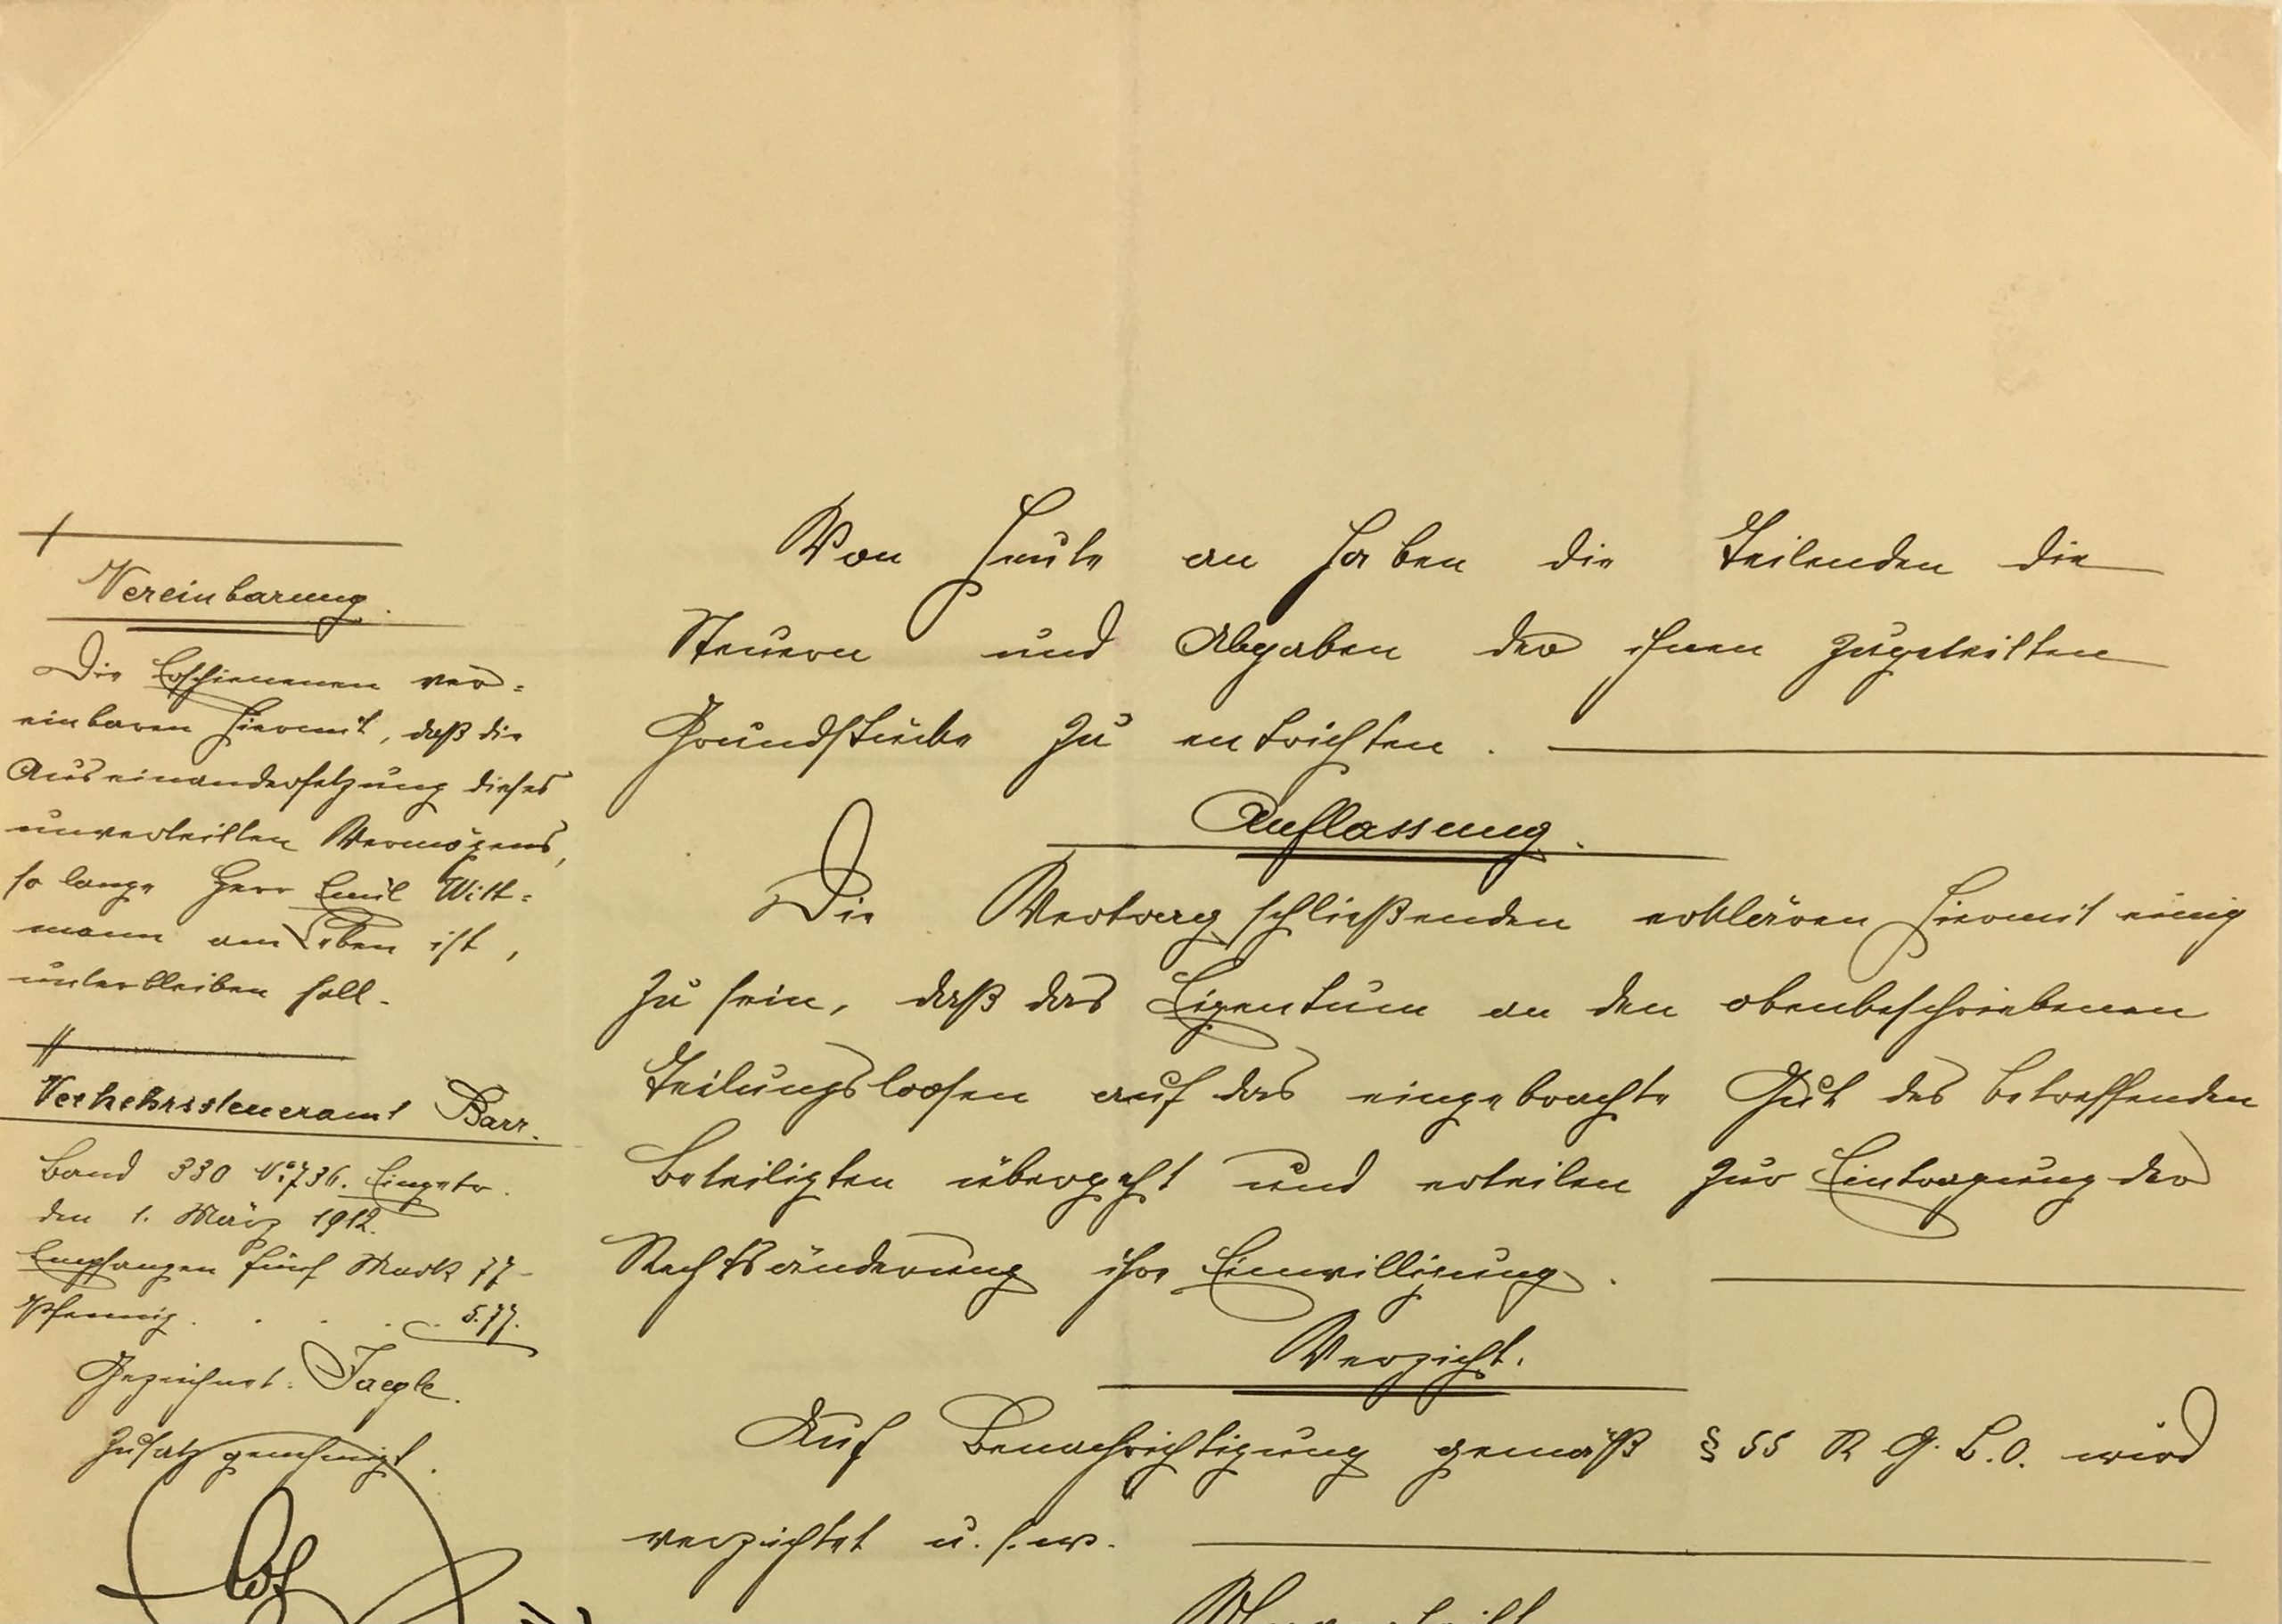 Vereinbarung.
Die Erschienenen ver=
einbaren hiermit, daß die
Auseinandersetzung dieses
unverteilten Vermögens,
so lange Herr Emil Witt=
mann am Leben ist,
unterbleiben soll.
Verkehrssteueramt Barr.
Band 330 No 736. Eingetr.
den 1. März 1912.
Empfangen fünf Mark 77
Pfennig. . . . . 5.77.
Gezeichnet: Jaegle.
Zusatz genehmigt.
Von heute an haben die Teilenden die
Steuern und Abgaben der ihnen zugeteilten
Grundstücke zu entrichten.
Auflassung.
Die Vertragschließenden erklären hiermit einig
zu sein, daß das Eigentum an den obenbeschriebenen
Teilungsloosen auf das eingebrachte Gut des betreffenden
Beteiligten übergeht und erteilen zur Eintragung der
Rechtsänderung ihre Einwilligung.
Verzicht.
Auf Benachrichtigung gemäß § 55 R. G. B. O. wird
verzichtet u. s. w.